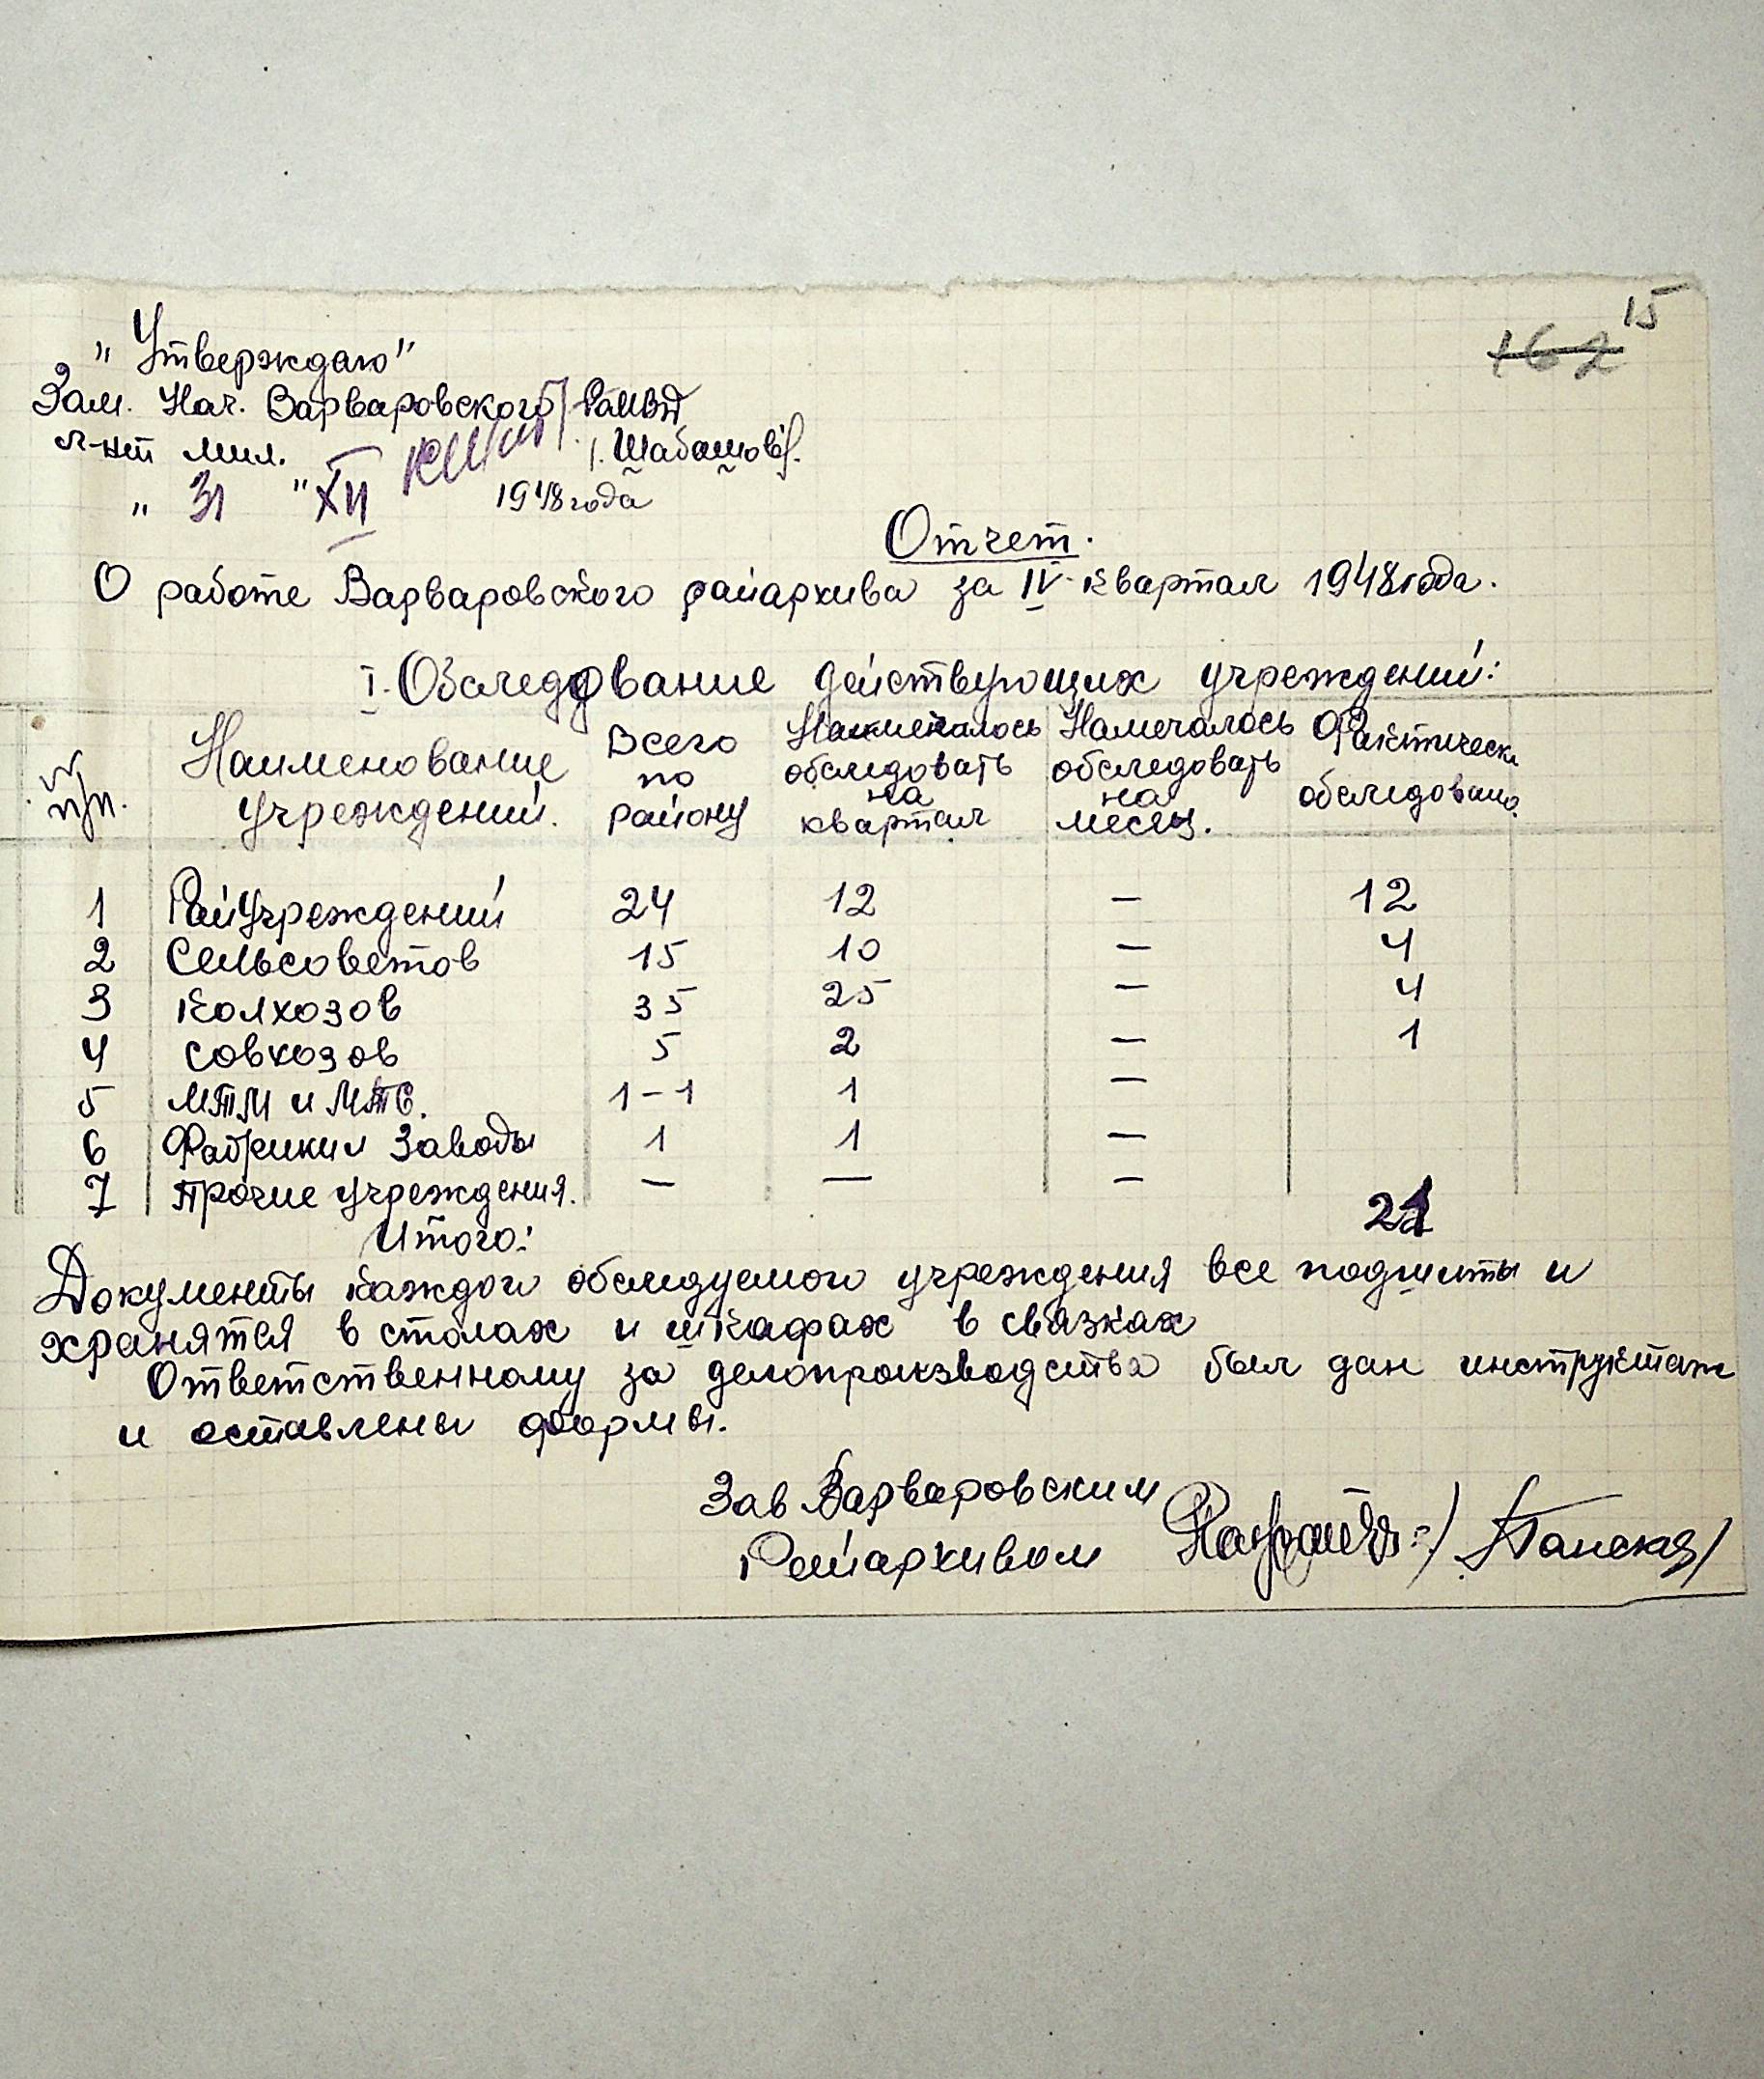 15
162
„Утверждаю"
Зам. Нач. Варваровского РайМВД
л-нт мил. /Шабашов/.
„31" XII 1948 года
Отчет.
О работе Варваровского райархива за IV квартал 1948 года.
I. Обследование действующих учреждений:
№№ п/п. | Наименование учреждений. | Всего по району | Намечалось обследовать на квартал | Намечалось обследовать на месяц. | Фактически обследовано
1 Райучреждений 24 12 — 12
2 Сельсоветов 15 10 — 4
3 Колхозов 35 25 — 4
4 Совхозов 5 2 — 1
5 МТМ и МТС. 1-1 1 —
6 Фабрики и Заводы 1 1 —
7 Прочие учреждения. — — —
Итого: 21
Документы каждого обследуемого учреждения все подшиты и
хранятся в столах и шкафах в связках
Ответственному за делопроизводства был дан инструктаж
и оставлены формы.
Зав Варваровским
Райархивом /Панская/